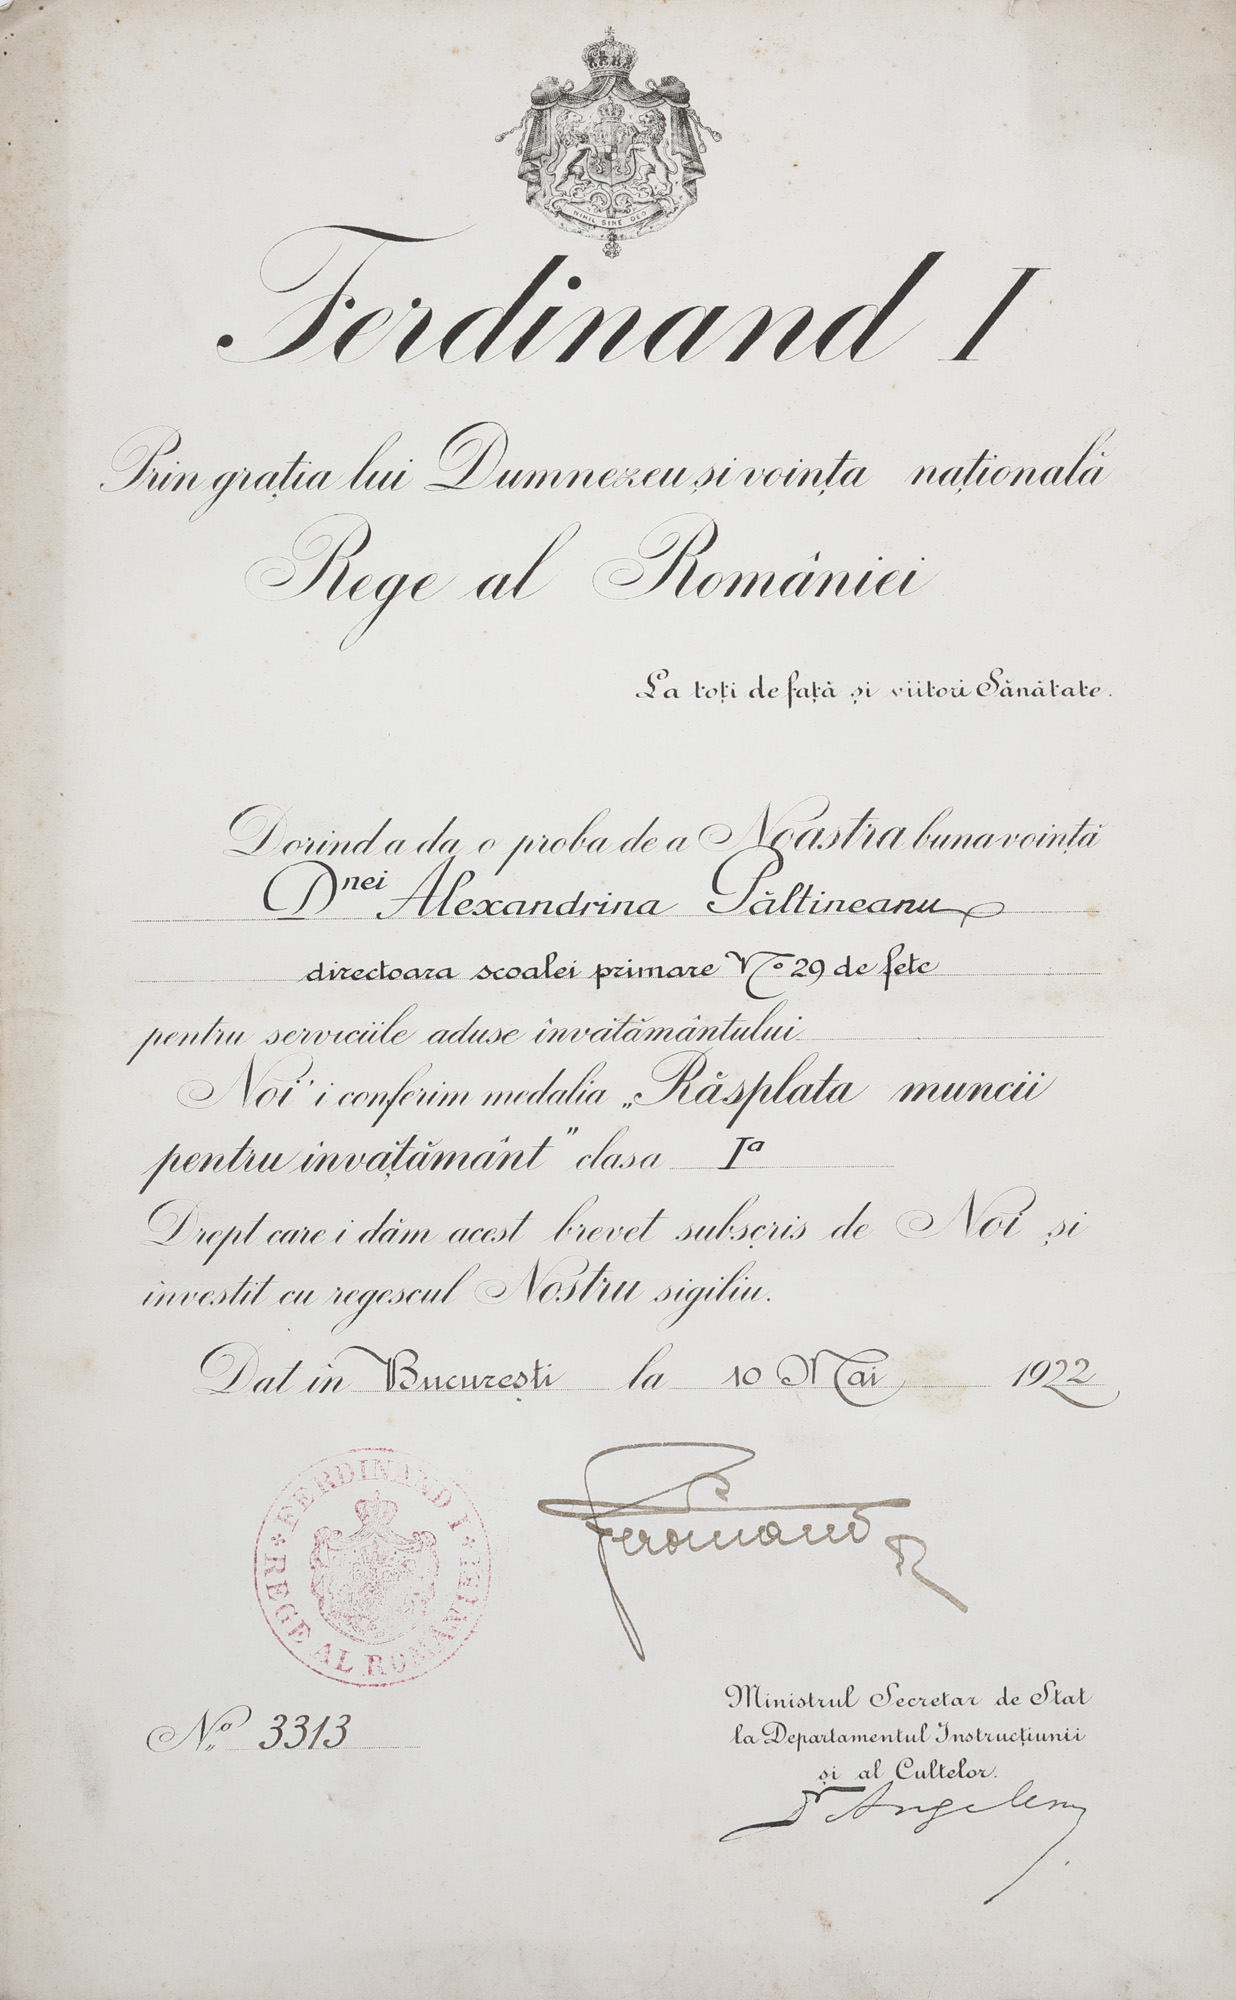 NIHIL SINE DEO
Ferdinand I
Prin grația lui Dumnezeu și voința națională
Rege al României
La toți de față și viitori Sănătate.
Dorind a da o proba de a Noastra bunavoință
Dnei Alexandrina Păltineanu
directoara scoalei primare No 29 de fete
pentru serviciile aduse învățământului
Noi i conferim medalia „Răsplata muncii
pentru invațământ" clasa Ia
Drept care i dăm acest brevet subscris de Noi și
investit cu regescul Nostru sigiliu.
Dat in București la 10 Mai 1922
FERDINAND I
REGE AL ROMÂNIEI
Ferdinand R
No 3313
Ministrul Secretar de Stat
la Departamentul Instrucțiunii
și al Cultelor.
Dr Angelescu